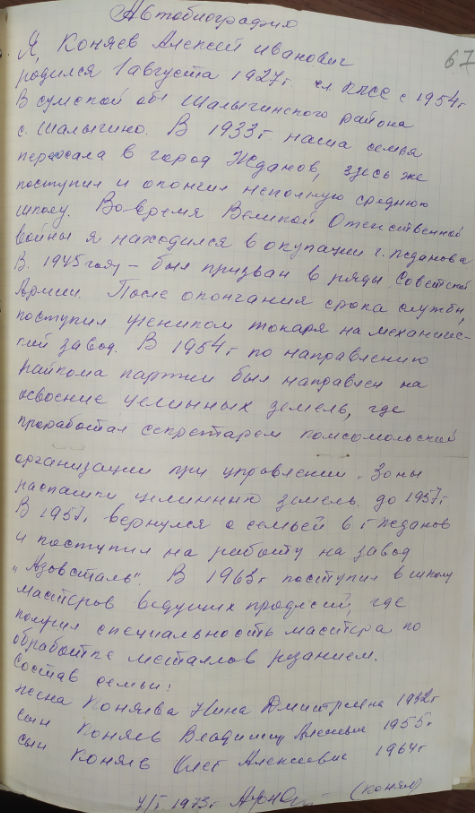 Автобиография
67
Я, Коняев Алексей Иванович
родился 1 августа 1927г чл КПСС с 1954г
В сумской обл Шалыгинского района
с. Шалыгино. В 1933г наша семья
переехала в город Жданов, здесь же
поступил и окончил неполную среднюю
школу. Во время Великой Отечественной
войны я находился в окупации г. Жданова
В 1945 году – был призван в ряды Советской
Армии. После окончания срока службы,
поступил учеником токаря на механичес-
кий завод. В 1954г по направлению
райкома партии был направлен на
освоение целинных земель, где
проработал секретарем комсомольский
организации при управлении. Зоны
распашки целинных земель до 1957г
В 1957г вернулся с семьей в г Жданов
и поступил на работу на завод
„Азовсталь". В 1963г поступил в школу
мастеров ведущих профессий, где
получил специальность мастера по
обработке металлов резанием.
Состав семьи:
жена Коняева Нина Дмитриевна 1932г
сын Коняев Владимир Алексеевич 1955г
сын Коняев Олег Алексеевич 1964г
1973г (Коняев)